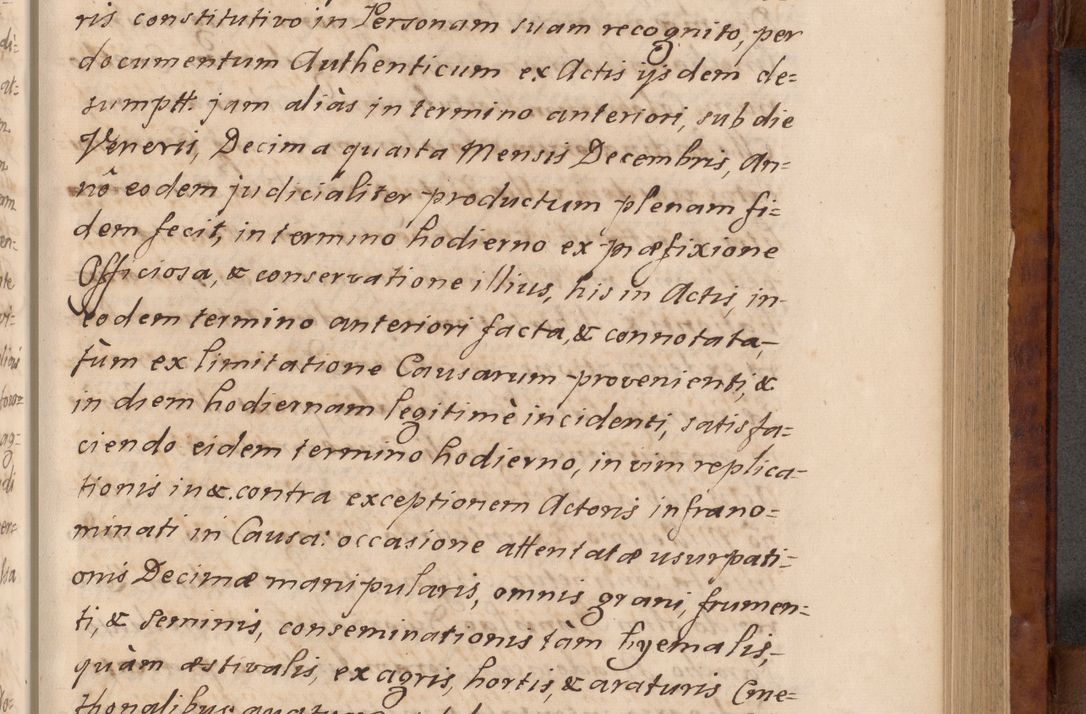 ris constitutivo in Personam suam recognito, per
documentum Authenticum ex Actis ijsdem de=
sumptt. jam aliàs in termino anteriori, sub die
Veneris, Decima quarta Mensis Decembris, An=
nô eodem judicialiter productum plenam fi=
dem fecit, in termino hodierno ex præfixione
Officiosa, & conservatione illius, his in Actis, in
eodem termino anteriori facta, & connotata,
tùm ex limitatione Causarum provenienti, &
in diem hodiernam legitimè incidenti, satisfa=
ciendo eidem termino hodierno, in vim replica=
tionis in &. contra exceptionem Actoris infrano=
minati in Causa: occasione attentatæ usurpati=
onis Decimæ manipularis, omnis grani, frumen=
ti, & seminis, conseminationis tàm hyemalis,
quàm æstivalis, ex agris, hortis, & araturis Cme=
thonalibus